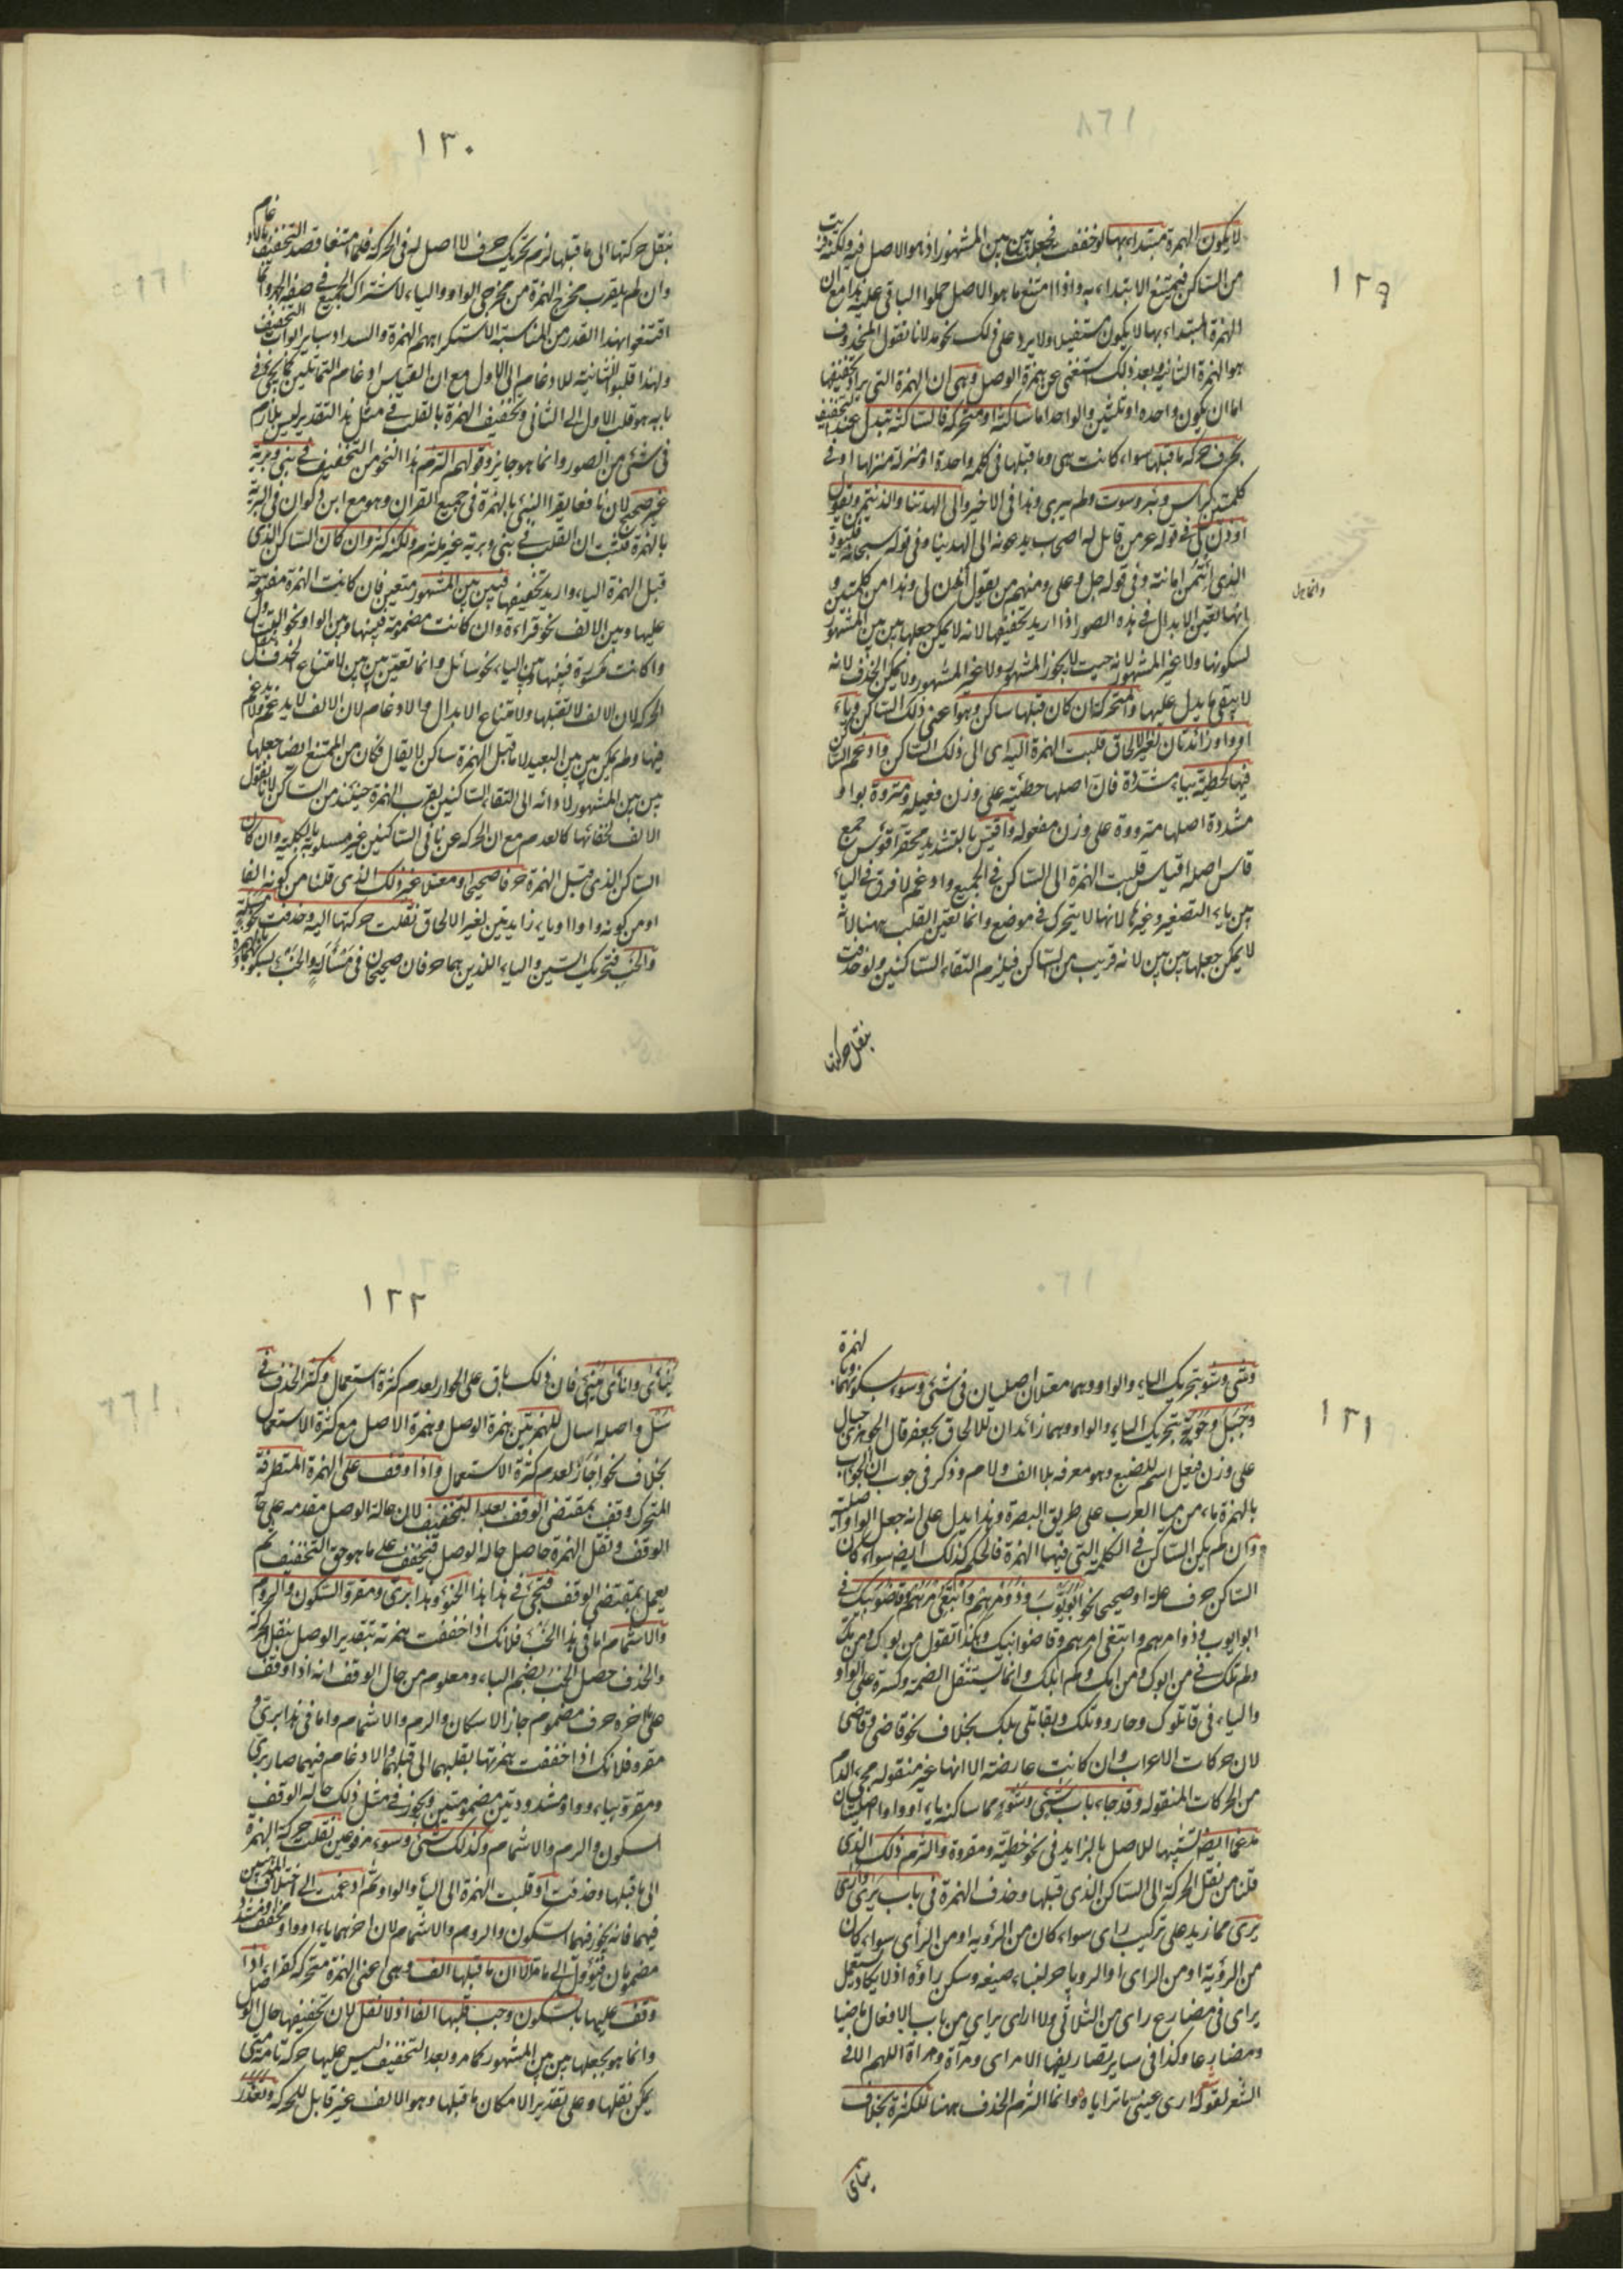 ١٢٩
لا يكون الهمزة مبتداء بها لو خففت فجعل بين بين المشهور اذ هو الاصل فيه ولكنه قريب
من الساكن فيمتنع الابتداء به واذا امتنع ما هو الاصل حملوا الباقى عليه هذا مع ان
الهمزة المبتداء بها لا يكون مستثقلا ولا يرد على ذلك نحو خذ لانا نقول المحذوف
هو الهمزة الثانية وبعد ذلك استغنى عن همزة الوصل وهى ان الهمزة التى يراد تخفيفها
اما ان يكون واحدة او ثنتين والواحد اما ساكنة او متحركة فالساكنة تبدل عند التخفيف
بحرف حركة ما قبلها سواء كانت هى وما قبلها فى كلمة واحدة او منزلة منزلها او فى
كلمتين كراس وبير وسوت ولم يبرى وهذا فى الاخير والى الهداتنا والذيتمن ويقول
اوذن لى فى قوله عز من قائل له اصحاب يدعونه الى الهدى ائتنا وفى قوله سبحانه فليود
الذى ائتمن امانته وفى قوله جل وعلى ومنهم من يقول ائذن لى وهذا من كلمتين و
انما تعين الابدال فى هذه الصور اذا اريد تخفيفها لانه لا يمكن جعلها بين بين المشهور
لسكونها ولا غير المشهور لانه حيث لا يجوز المشهور ولا غير المشهور ولا يمكن الحذف لانه
لا يبقى ما يدل عليها والمتحركة ان كان قبلها ساكن وهو اعنى ذلك الساكن وياء
او واو زائدتان لغير الالحاق قلبت الهمزة اليه اى الى ذلك الساكن وادغم الساكن
فيها كخطية بياء مشددة فان اصلها خطيئة على وزن فعيلة ومقروة بواو
مشددة اصلها مقرووة على وزن مفعولة واقيس بالتشديد محقر اقوس جمع
قاس اصله اقياس قلبت الهمزة الى الساكن فى الجميع وادغم لا فرق فى الياء
بين ياء التصغير وغيرها لانها لا يتحرك فى موضع وانما تعين القلب ههنا لانه
لا يمكن جعلها بين بين لانه قريب من الساكن فيلزم التقاء الساكنين ولو حذفت
بنقل حركتها
وانما هل
١٣٠
بنقل حركتها الى ما قبلها لزم تحريك حرف لا اصل له فى الحركة فلما امتنعا قصد التخفيف بالادغام
وان لم يقرب مخرج الهمزة من مخرجى الواو والياء لاشتراك الجميع فى صفة الجهر وانما
اقتنعوا بهذا القدر من المناسبة لاستكراههم الهمزة وانسداد سباير ابواب التخفيف
ولهذا قلبوا الثانية للادغام الى الاول مع ان القياس ادغام المتماثلين كما يجئ فى
بابه هو قلب الاول الى الثانى وتخفيف الهمزة بالقلب فى مثل هذا التقدير ليس بلازم
فى شئ من الصور وانما هو جايز وقولهم التزم هذا النحو من التخفيف فى نبى وبرية
غير صحيح لان نافعا يقرا النبئ بالهمزة فى جميع القران وهو مع ابن ذكوان فى البرية
بالهمزة فثبت ان القلب فى نبى وبرية غير ملتزم ولكنه كثر وان كان الساكن الذى
قبل الهمزة الفا واريد تخفيفها فبين بين المشهور متعين فان كانت الهمزة مفتوحة
عليها وبين الالف نحو قراءة وان كانت مضمومة فبينها وبين الواو نحو التقاول
وا كانت مكسورة فبينها وبين الياء نحو سائل وانما تعين بين بين لامتناع الحذف بنقل
الحركة لان الالف لا تقبلها ولامتناع الابدال والادغام لان الالف لا يدغم ولا يدغم
فيها ولم يمكن بين بين البعيد لا ما قبل الهمزة ساكن لا يقال فكان من الممتنع ايضا جعلها
بين بين المشهور لادائه الى التقاء الساكنين لقرب الهمزة حينئذ من الساكن لانا نقول
الالف لخفائها كالعدم مع ان الحركة عن ثانى الساكنين غير مسلوبة بالكلية وان كان
الساكن الذى قبل الهمزة حرفا صحيحا او معتلا غير ذلك الذى قلنا من كونه الفا
او من كونه واوا او ياء زايدتين لغير الالحاق نقلت حركتها اليه وحذفت نحو مسلة
والخب فتحريك السين والياء اللذين هما حرفان صحيحان فى مسألة والخبء بسكونهما وبالهمزة
١٣١
وشى وسو بتحريك الياء والواو وهما معتلان اصليان فى شئ وسوء بسكونهما وبالهمزة
وجيل وحوبة بتحريك الياء والواو وهما زائدان للالحاق بجعفر قال الجوهرى جيال
على وزن فيعل اسم للضبع وهو معرفة بلا الف ولام وذكر فى حوب ان الحوأب
بالهمزة ماء من مياه العرب على طريق البصرة وهذا يدل على انه جعل الواو اصلية
وان لم يكن الساكن فى الكلمة التى فيها الهمزة فالحكم كذلك ايضا سواء كان
الساكن حرف علة او صحيحا نحو ابويوب وذومرهم واتبغى مرهم وقاضوبيك فى
ابو ايوب وذو امرهم وابتغى امرهم وقاضوا ابيك وهكذا تقول من بوك ومن مك
ولم بلك فى من ابوك ومن امك ولم ابلك وانما يستثقل الضمة وكسرة على الواو
والياء فى قاتلوك وحاروو بلك وبقاتلى بلك بخلاف نحو قاضو وقاضى
لان حركات الاعراب وان كانت عارضة الا انها غير منقولة مجرى اللازم
من الحركات المنقولة وقد جاء باب شئ وسوء مما ساكنه ياء او واو اصليتان
مدغما ايضا لتشبيها للاصل بالزايد فى نحو خطية ومقروة والتزم ذلك الذى
قلنا من نقل الحركة الى الساكن الذى قبلها وحذف الهمزة فى باب يرى وارى
يرى مما زيد على تركيب راى سواء كان من الرؤية او من الرأى سواء كان
من الرؤية او من الراى او الرويا حر لبناء صيغة وسكن راؤه اذ لا يكاد يستعمل
يراى فى مضارع راى من الثلاثى ولا ارأى يرإى من باب الافعال ماضيا
ومضارعا وكذا فى ساير تصاريفها الا مراى ومرآة ومراة اللهم الا فى
الشعر لقوله ارى عينى ما لم تراياه وانما التزم الحذف ههنا للكثرة بخلاف
يناى
١٣٢
ينأى وانأى ينئى فان ذلك باق على الجواز لعدم كثرة استعمال وكثر الحذف فى
سل واصله اسال للهمزتين همزة الوصل وهمزة الاصل مع كثرة الاستعمال
بخلاف نحو اجأر لعدم كثرة الاستعمال واذا وقف على الهمزة المتطرفة
المتحرك وقف بمقتضى الوقف بعد التخفيف لان حالة الوصل مقدمة على حالة
الوقف ونقل الهمزة حاصل حالة الوصل فتخفف على ما هو حق التخفيف ثم
يعمل بمقتضى الوقف فيجئ فى هذا الخبؤ وهذا برئ ومقرو السكون والروم
والاشمام اما فى هذا الخب فلانك اذا خففت همزته بتقدير الوصل بنقل الحركة
والحذف حصل الخب بضم الباء ومعلوم من حال الوقف انه اذا وقف
على ما اخره حرف مضموم جاز الاسكان والروم والاشمام واما فى هذا برئ و
مقرو فلانك اذا خففت همزتها بقلبهما الى قبلهما والادغام فيهما صار برى
ومقرو بياء وواو مشددتين مضمومتين ويجوز فى مثل ذلك حالة الوقف
السكون والروم والاشمام وكذلك شئ وسوء مرفوعين نقلت حركة الهمزة
الى ما قبلها وحذفت او قلبت الهمزة الى الياء والواو ثم ادغمت الى اختلاف المذهبين
فيهما فانه يجوز فيهما السكون والروم والاشمام لان اخرهما ياء او واو مخفف او مشدد
مضمومان فيؤول الى ما قلنا ان ما قبلها الف وهى اعنى الهمزة متحركة كقراء اذا
وقف عليها بالسكون وجب قلبها الفا اذ لا نقل لان تخفيفها حال الوصل
وانما هو بجعلها بين بين المشهور كما مر وبعد التخفيف ليس عليها حركة تامة حتى
يمكن نقلها وعلى تقدير الامكان ما قبلها وهو الالف غير قابل للحركة وتعذر